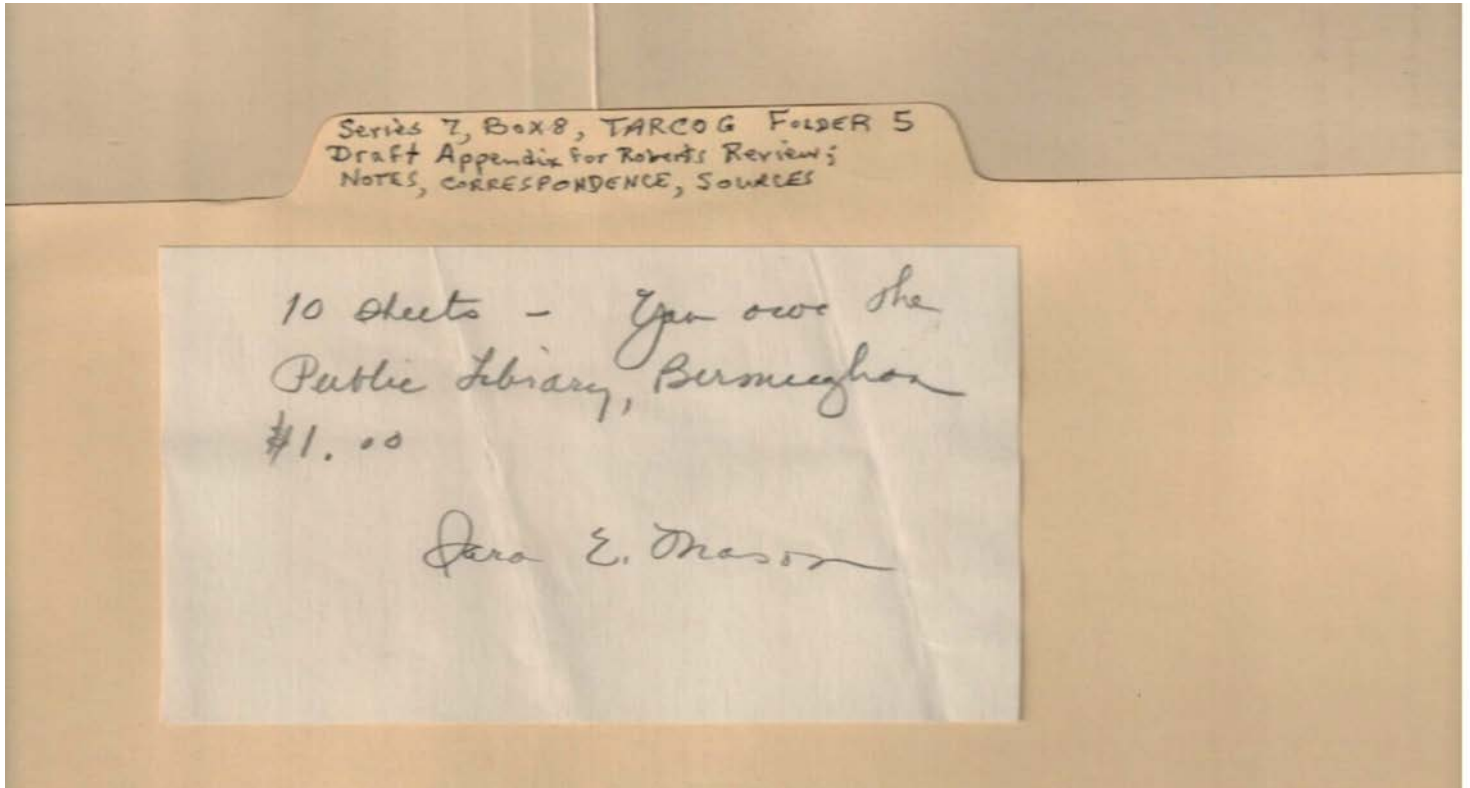 Series 7, Box 8, TARCOG FOLDER 5
Draft Appendix for Roberts Review;
NOTES, CORRESPONDENCE, SOURCES
10 sheets - You owe the
Public Library, Birmingham
$1.00
Sara E. Mason